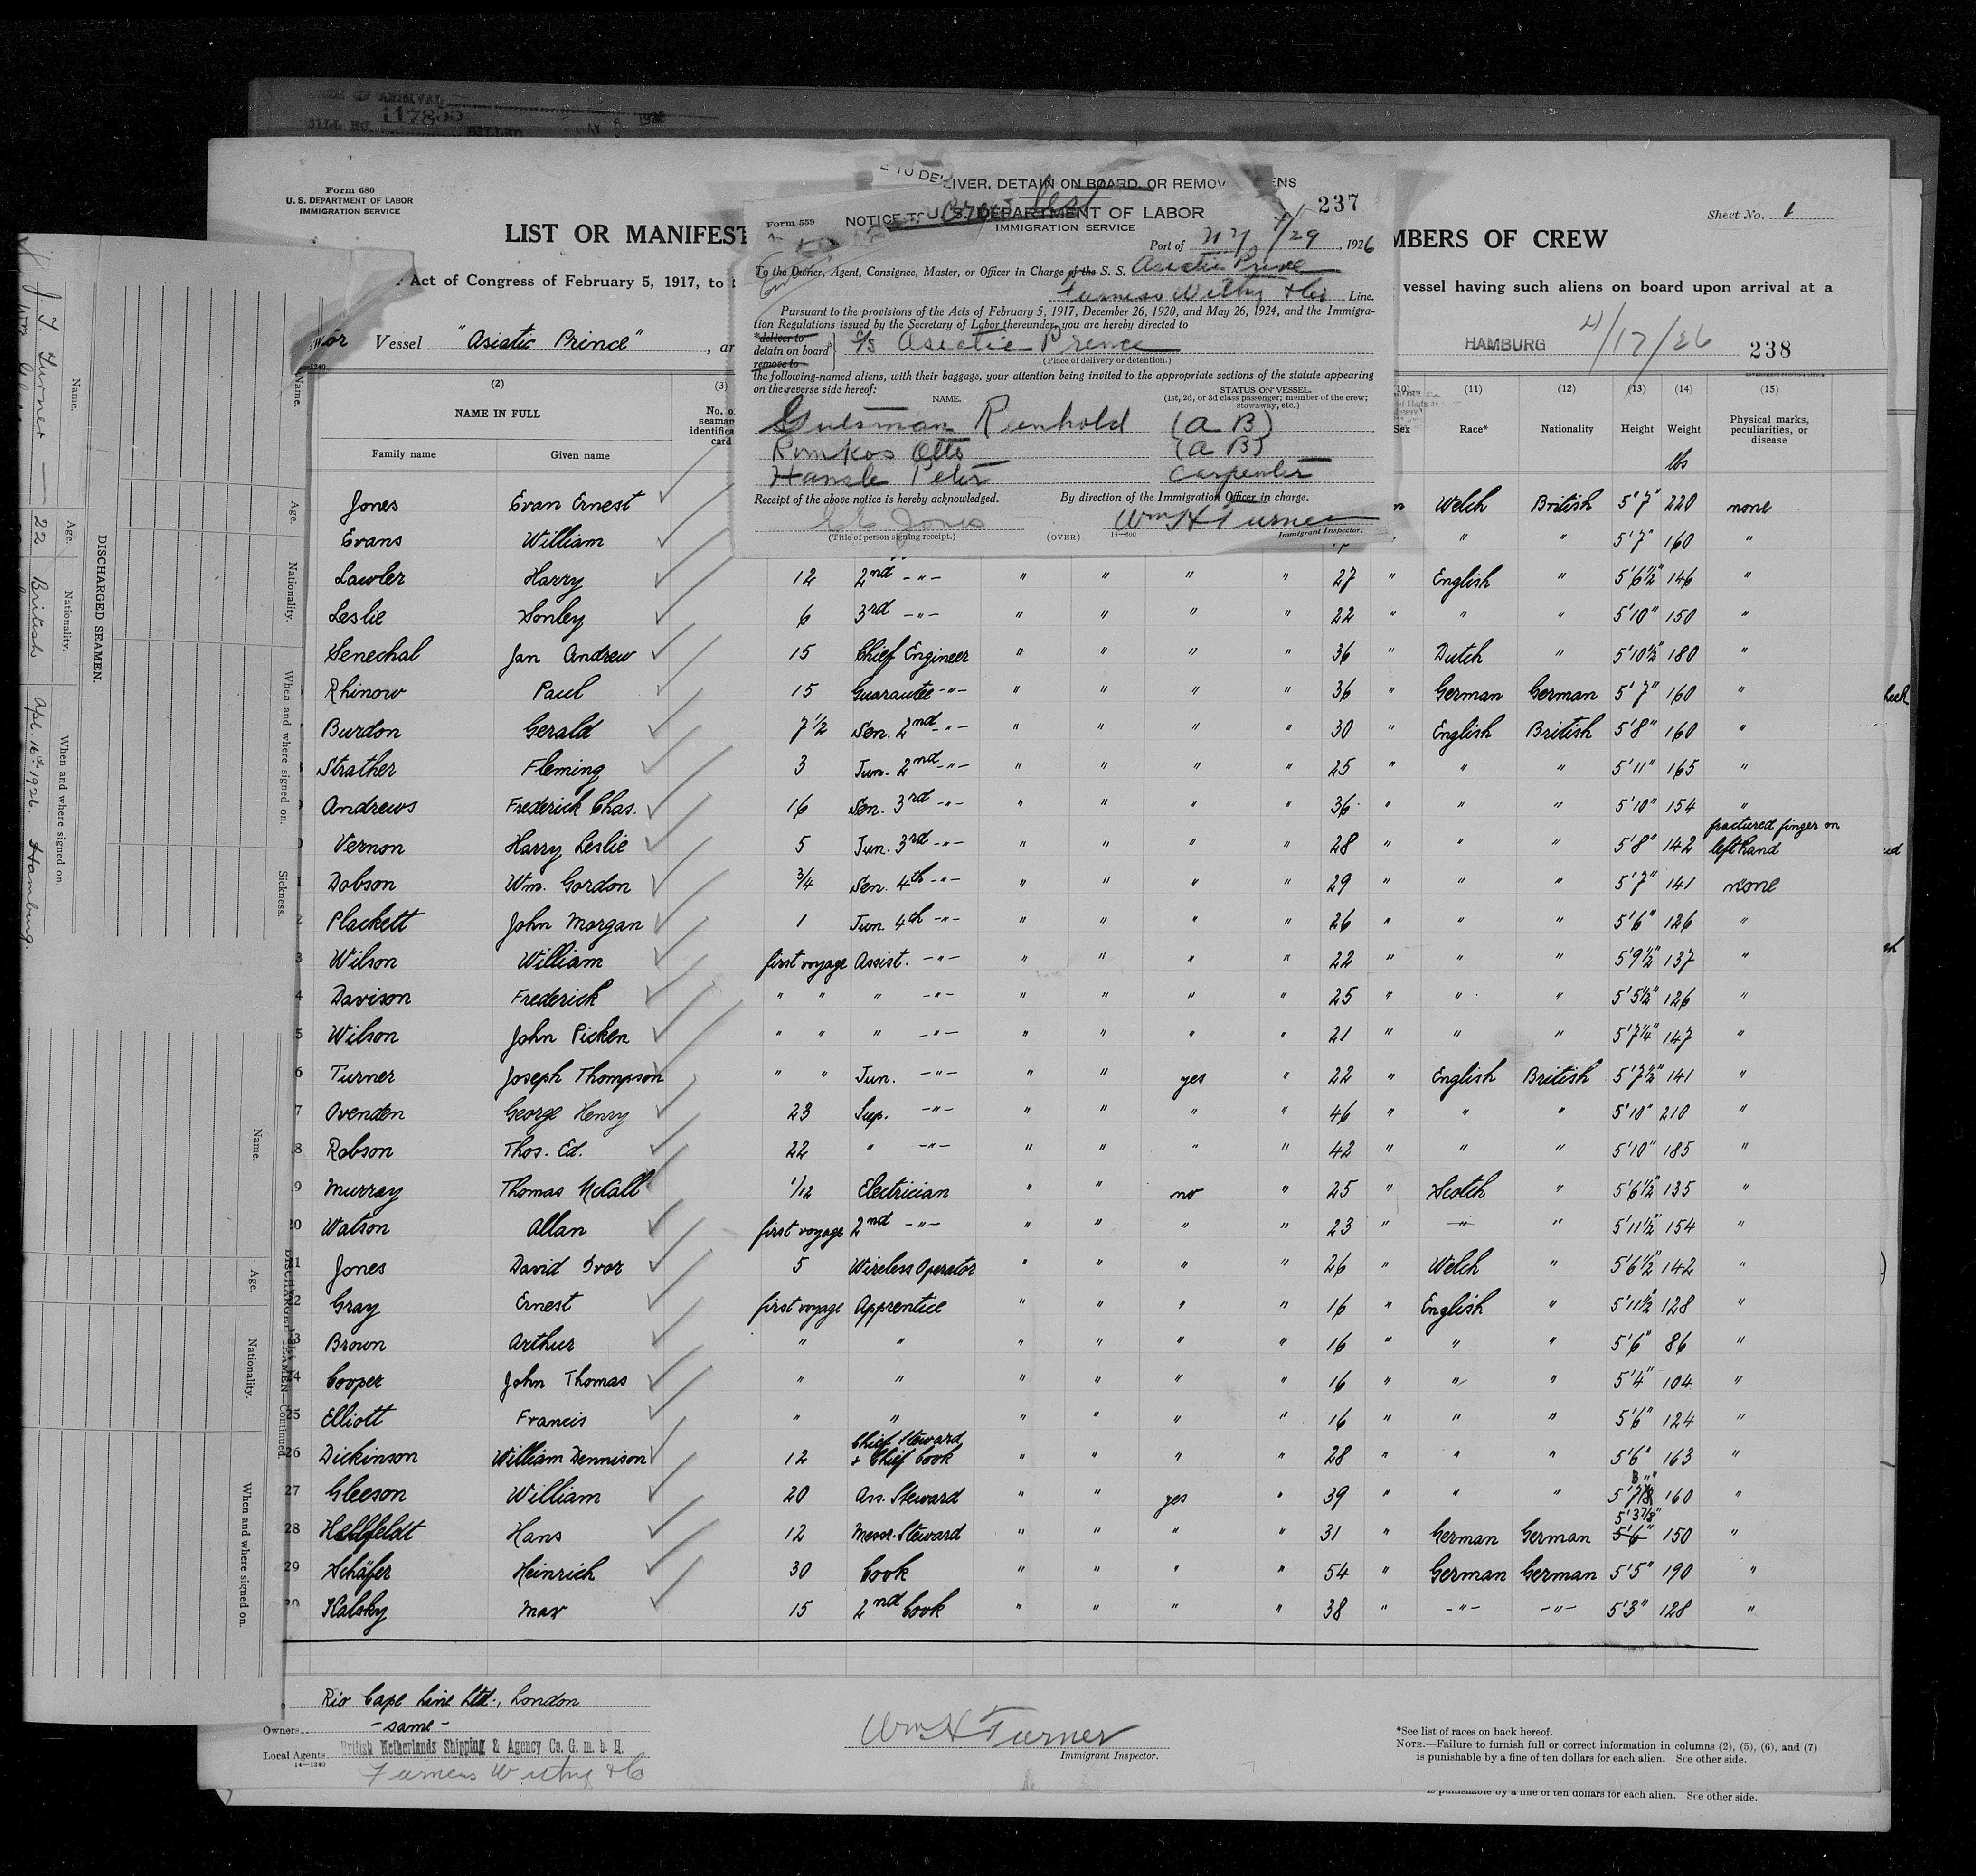 117855
Form 680
U. S. DEPARTMENT OF LABOR
IMMIGRATION SERVICE
LIST OR MANIFEST
MBERS OF CREW
Sheet No. 1
Act of Congress of February 5, 1917, to
vessel having such aliens on board upon arrival at a
Vessel "Asiatic Prince", ar
HAMBURG 4/17/26 238
LIVER, DETAIN ON BOARD, OR REMOV ENS
237
Form 559
NOTICE TO
U. S. DEPARTMENT OF LABOR
IMMIGRATION SERVICE
Port of NY 4/29, 1926
To the Owner, Agent, Consignee, Master, or Officer in Charge of the S. S. Asiatic Prince
Furness Withy & Co Line.
Pursuant to the provisions of the Acts of February 5, 1917, December 26, 1920, and May 26, 1924, and the Immigra-
tion Regulations issued by the Secretary of Labor thereunder, you are hereby directed to
deliver to
detain on board
remove to
S/S Asiatic Prince
(Place of delivery or detention.)
the following-named aliens, with their baggage, your attention being invited to the appropriate sections of the statute appearing
on the reverse side hereof:
NAME.
STATUS ON VESSEL.
(1st, 2d, or 3d class passenger; member of the crew;
stowaway, etc.)
Gutsman Reinhold (a B)
Rimkos Otto (a B)
Hansle Peter Carpenter
Receipt of the above notice is hereby acknowledged. By direction of the Immigration Officer in charge.
Jones
Wm H Turner
(Title of person signing receipt.) (OVER) 14—600 Immigrant Inspector.
(2) (3) (11) (12) (13) (14) (15)
NAME IN FULL
Family name Given name
Sex Race* Nationality Height Weight Physical marks, peculiarities, or disease
lbs
Jones Evan Ernest Welch British 5'7" 220 none
Evans William " " 5'7" 160 "
Lawler Harry 12 2nd -"- " " " " 27 " English " 5'6½" 146 "
Leslie Donley 6 3rd -"- " " " " 22 " " " 5'10" 150 "
Senechal Jan Andrew 15 Chief Engineer " " " " 36 " Dutch " 5'10½" 180 "
Rhinow Paul 15 Guarantee -"- " " " " 36 " German German 5'7" 160 "
Burdon Gerald 7½ Sen. 2nd -"- " " " " 30 " English British 5'8" 160 "
Strather Fleming 3 Jun. 2nd -"- " " " " 25 " " " 5'11" 165 "
Andrews Frederick Chas. 16 Sen. 3rd -"- " " " " 36 " " " 5'10" 154 "
Vernon Harry Leslie 5 Jun. 3rd -"- " " " " 28 " " " 5'8" 142 fractured finger on left hand
Dobson Wm. Gordon ¾ Sen. 4th -"- " " " " 29 " " " 5'7" 141 none
Plackett John Morgan 1 Jun. 4th -"- " " " " 26 " " " 5'6" 126 "
3 Wilson William first voyage Assist. -"- " " " " 22 " " " 5'9½" 137 "
4 Davison Frederick " " " -"- " " " " 25 " " " 5'5½" 126 "
5 Wilson John Picken " " " -"- " " " " 21 " " " 5'7¼" 147 "
6 Turner Joseph Thompson " " Jun. -"- " " yes " 22 " English British 5'7½" 141 "
7 Ovenden George Henry 23 Sup. -"- " " " " 46 " " " 5'10" 210 "
8 Robson Thos. Ed. 22 " -"- " " " " 42 " " " 5'10" 185 "
9 Murray Thomas McCall 1/12 Electrician " " no " 25 " Scotch " 5'6½" 135 "
20 Watson Allan first voyage 2nd -"- " " " " 23 " -"- " 5'11½" 154 "
1 Jones David Ivor 5 Wireless Operator " " " " 26 " Welch " 5'6½" 142 "
2 Gray Ernest first voyage Apprentice " " " " 16 " English " 5'11½" 128 "
3 Brown Arthur " " " " " " 16 " " " 5'6" 86 "
24 Cooper John Thomas " " " " " " 16 " " " 5'4" 104 "
25 Elliott Francis " " " " " " 16 " " " 5'6" 124 "
26 Dickinson William Dennison 12 Chief Steward + Chief Cook " " " " 28 " " " 5'6" 163 "
27 Gleeson William 20 Ass. Steward " " yes " 39 " " " 5'7 160 "
28 Hans 12 Messr. Steward " " " " 31 " German German 5'6" 5'3⅞" 150 "
29 Schäfer Heinrich 30 Cook " " " " 54 " German German 5'5" 190 "
30 Kalsky Max 15 2nd Cook " " " " 38 " -"- -"- 5'3" 128 "
Rio Cape Line Ltd., London
Owners -same-
Local Agents British Netherlands Shipping & Agency Co. G. m. b. H.
14—1240
Furness Withy & Co
Wm H Turner
Immigrant Inspector.
*See list of races on back hereof.
NOTE.—Failure to furnish full or correct information in columns (2), (5), (6), and (7)
is punishable by a fine of ten dollars for each alien. See other side.
is punishable by a fine of ten dollars for each alien. See other side.
DISCHARGED SEAMEN.
Name. Age. Nationality. When and where signed on.
J. T. Turner 22 British Apl. 16th 1926. Hamburg.
Name. Age. Nationality. When and where signed on. Sickness.
DISCHARGED SEAMEN—Continued.
Name. Age. Nationality. When and where signed on.